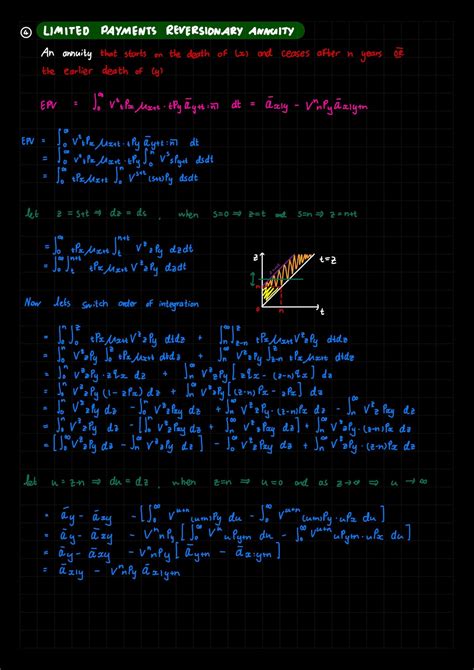 ④ LIMITED PAYMENTS REVERSIONARY ANNUITY
An annuity that starts on the death of (x) and ceases after n years OR
the earlier death of (y)
EPV = ∫₀^∞ vᵗ ₜpₓ μₓ₊ₜ · ₜp_y ā_{y+t:n̅|} dt = ā_{x|y} − vⁿ ₙp_y ā_{x|y+n}
EPV = ∫₀^∞ vᵗ ₜpₓ μₓ₊ₜ · ₜp_y ā_{y+t:n̅|} dt
= ∫₀^∞ vᵗ ₜpₓ μₓ₊ₜ · ₜp_y ∫₀ⁿ vˢ ₛp_{y+t} ds dt
= ∫₀^∞ ₜpₓ μₓ₊ₜ ∫₀ⁿ vˢ⁺ᵗ ₍ₛ₊ₜ₎p_y ds dt
let z = s+t ⇒ dz = ds, when s=0 ⇒ z=t and s=n ⇒ z=n+t
= ∫₀^∞ ₜpₓ μₓ₊ₜ ∫ₜ^{n+t} v^z _zp_y dz dt
= ∫₀^∞ ∫ₜ^{n+t} ₜpₓ μₓ₊ₜ v^z _zp_y dz dt
z
t=z
n
n
t
Now lets switch order of integration
= ∫₀ⁿ ∫₀^z ₜpₓ μₓ₊ₜ v^z _zp_y dt dz + ∫ₙ^∞ ∫_{z−n}^z ₜpₓ μₓ₊ₜ v^z _zp_y dt dz
= ∫₀ⁿ v^z _zp_y ∫₀^z ₜpₓ μₓ₊ₜ dt dz + ∫ₙ^∞ v^z _zp_y ∫_{z−n}^z ₜpₓ μₓ₊ₜ dt dz
= ∫₀ⁿ v^z _zp_y · _zqₓ dz + ∫ₙ^∞ v^z _zp_y [ _zqₓ − _{(z−n)}qₓ ] dz
= ∫₀ⁿ v^z _zp_y (1 − _zpₓ) dz + ∫ₙ^∞ v^z _zp_y [ _{(z−n)}pₓ − _zpₓ ] dz
= ∫₀ⁿ v^z _zp_y dz − ∫₀ⁿ v^z _zp_{xy} dz + ∫ₙ^∞ v^z _zp_y · _{(z−n)}pₓ dz − ∫ₙ^∞ v^z _zp_{xy} dz
= ∫₀ⁿ v^z _zp_y dz − ∫₀^∞ v^z _zp_{xy} dz + ∫ₙ^∞ v^z _zp_y · _{(z−n)}pₓ dz
= [∫₀^∞ v^z _zp_y dz − ∫ₙ^∞ v^z _zp_y dz] − ∫₀^∞ v^z _zp_{xy} dz + ∫ₙ^∞ v^z _zp_y · _{(z−n)}pₓ dz
let u = z−n ⇒ du = dz, when z=n ⇒ u=0 and as z→∞ ⇒ u→∞
= ā_y − ā_{xy} − [∫₀^∞ v^{u+n} _{(u+n)}p_y du − ∫₀^∞ v^{u+n} _{(u+n)}p_y · _up_x du]
= ā_y − ā_{xy} − vⁿ ₙp_y [∫₀^∞ v^u _up_{y+n} du − ∫₀^∞ v^u _up_{y+n} · _up_x du]
= ā_y − ā_{xy} − vⁿ ₙp_y [ ā_{y+n} − ā_{x:y+n} ]
= ā_{x|y} − vⁿ ₙp_y ā_{x|y+n}